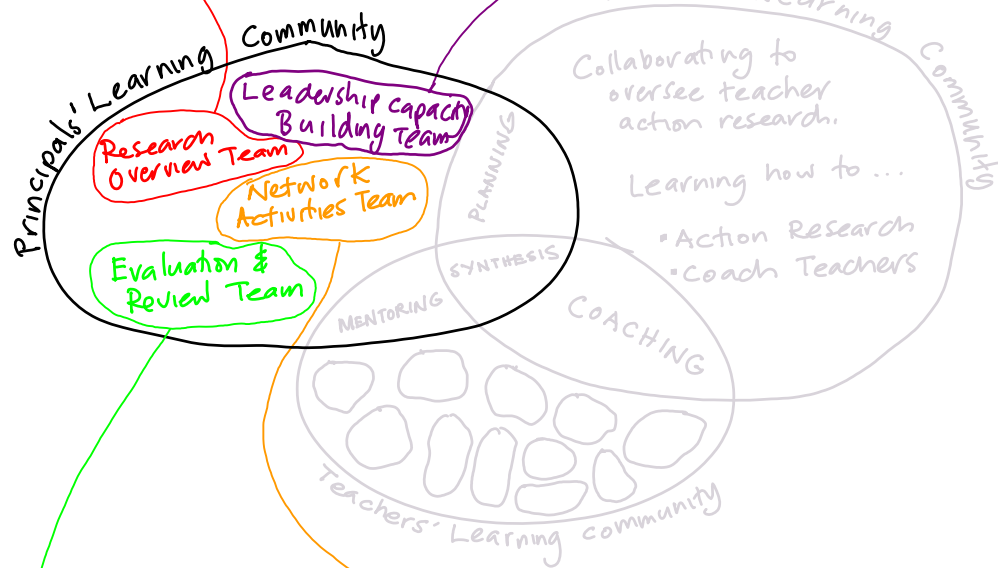 Principals' Learning Community
Leadership Capacity
Building Team
Research
Overview Team
Network
Activities Team
Evaluation &
Review Team
Learning Community
Collaborating to
oversee teacher
action research.
Learning how to ...
• Action Research
• Coach Teachers
PLANNING
SYNTHESIS
MENTORING
COACHING
Teachers' Learning community